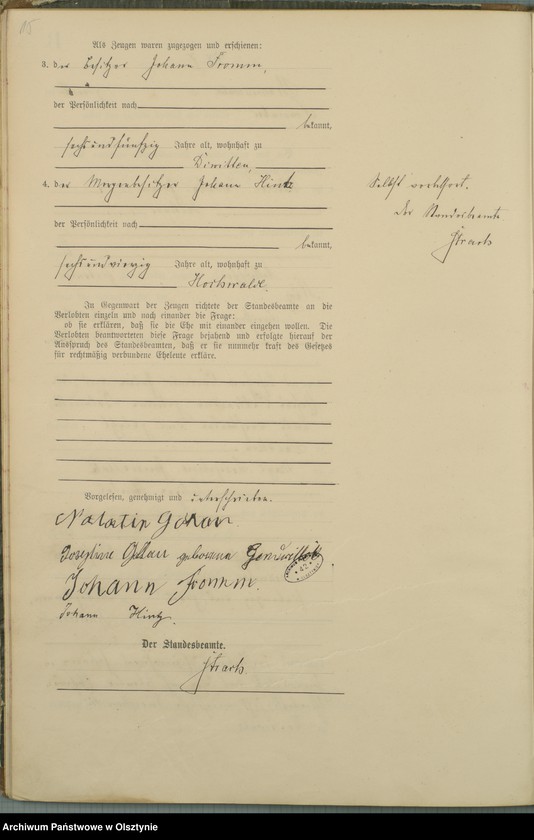 15
Als Zeugen waren zugezogen und erschienen:
3. der Besitzer Johann Fromm,
der Persönlichkeit nach
bekannt,
sechsundfünfzig Jahre alt, wohnhaft zu
Diwitten,
4. der Johann Hintz
der Persönlichkeit nach
bekannt,
sechsundvierzig Jahre alt, wohnhaft zu
Hochwalde.
Selbst
Der Standesbeamte
In Gegenwart der Zeugen richtete der Standesbeamte an die
Verlobten einzeln und nach einander die Frage:
ob sie erklären, daß sie die Ehe mit einander eingehen wollen. Die
Verlobten beantworteten diese Frage bejahend und erfolgte hierauf der
Ausspruch des Standesbeamten, daß er sie nunmehr kraft des Gesetzes
für rechtmäßig verbundene Eheleute erkläre.
Vorgelesen, genehmigt und unterschrieben.
Josephine geborene
Johann Fromm.
Johann Hintz.
Der Standesbeamte.
Archiwum Państwowe w Olsztynie